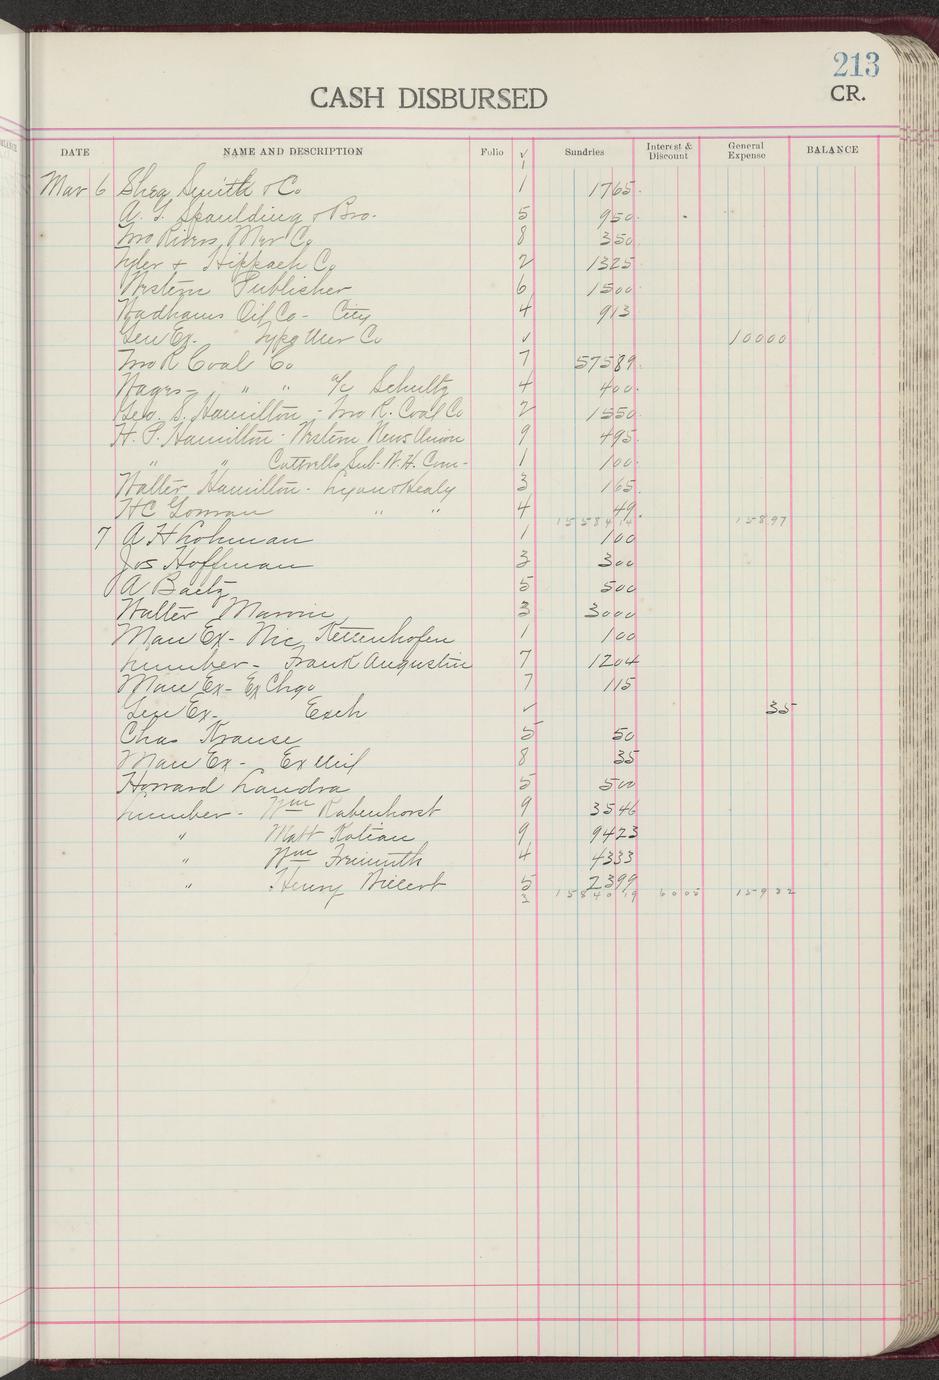 213
CASH DISBURSED
CR.
DATE NAME AND DESCRIPTION Folio √ Sundries Interest & Discount General Expense BALANCE
1
Mar 6 Shea Smith & Co 1 1765
A. G. Spaulding & Bro. 5 950
Two Rivers Mer Co 8 350
Tyler & Hippach Co 2 1325
Western Publisher 6 1500
Wadhams Oil Co - City 4 913
Gen Ex. Type Mer Co √ 10000
Two R Coal Co 7 57589
Wages - " " a/c Schultz 4 400
Geo. S. Hamilton - Two R. Coal Co 2 1550
H. P. Hamilton - Western News Union 9 495
" " Cottrells Sub - W. H. Com - 1 100
Walter Hamilton - Lyon & Healy 3 165
H C Gorman " " 4 49
1558414 15897
7 A H Lohman 1 100
Jos Hoffman 3 300
A Baetz 5 500
Walter Marvin 3 3000
Man Ex - Nic Kettenhofen 1 100
Lumber - Frank Augustin 7 1204
Man Ex - Ex Chgo 7 115
Gen Ex - Exch √ 35
Chas Krause 5 50
Man Ex - Ex Mil 8 35
Howard Landra 5 500
Lumber - Wm Rabenhorst 9 3546
" Matt Kolian 9 9423
" Wm Freimuth 4 4333
" Henry 5 2399
3 1584019 6005 15932